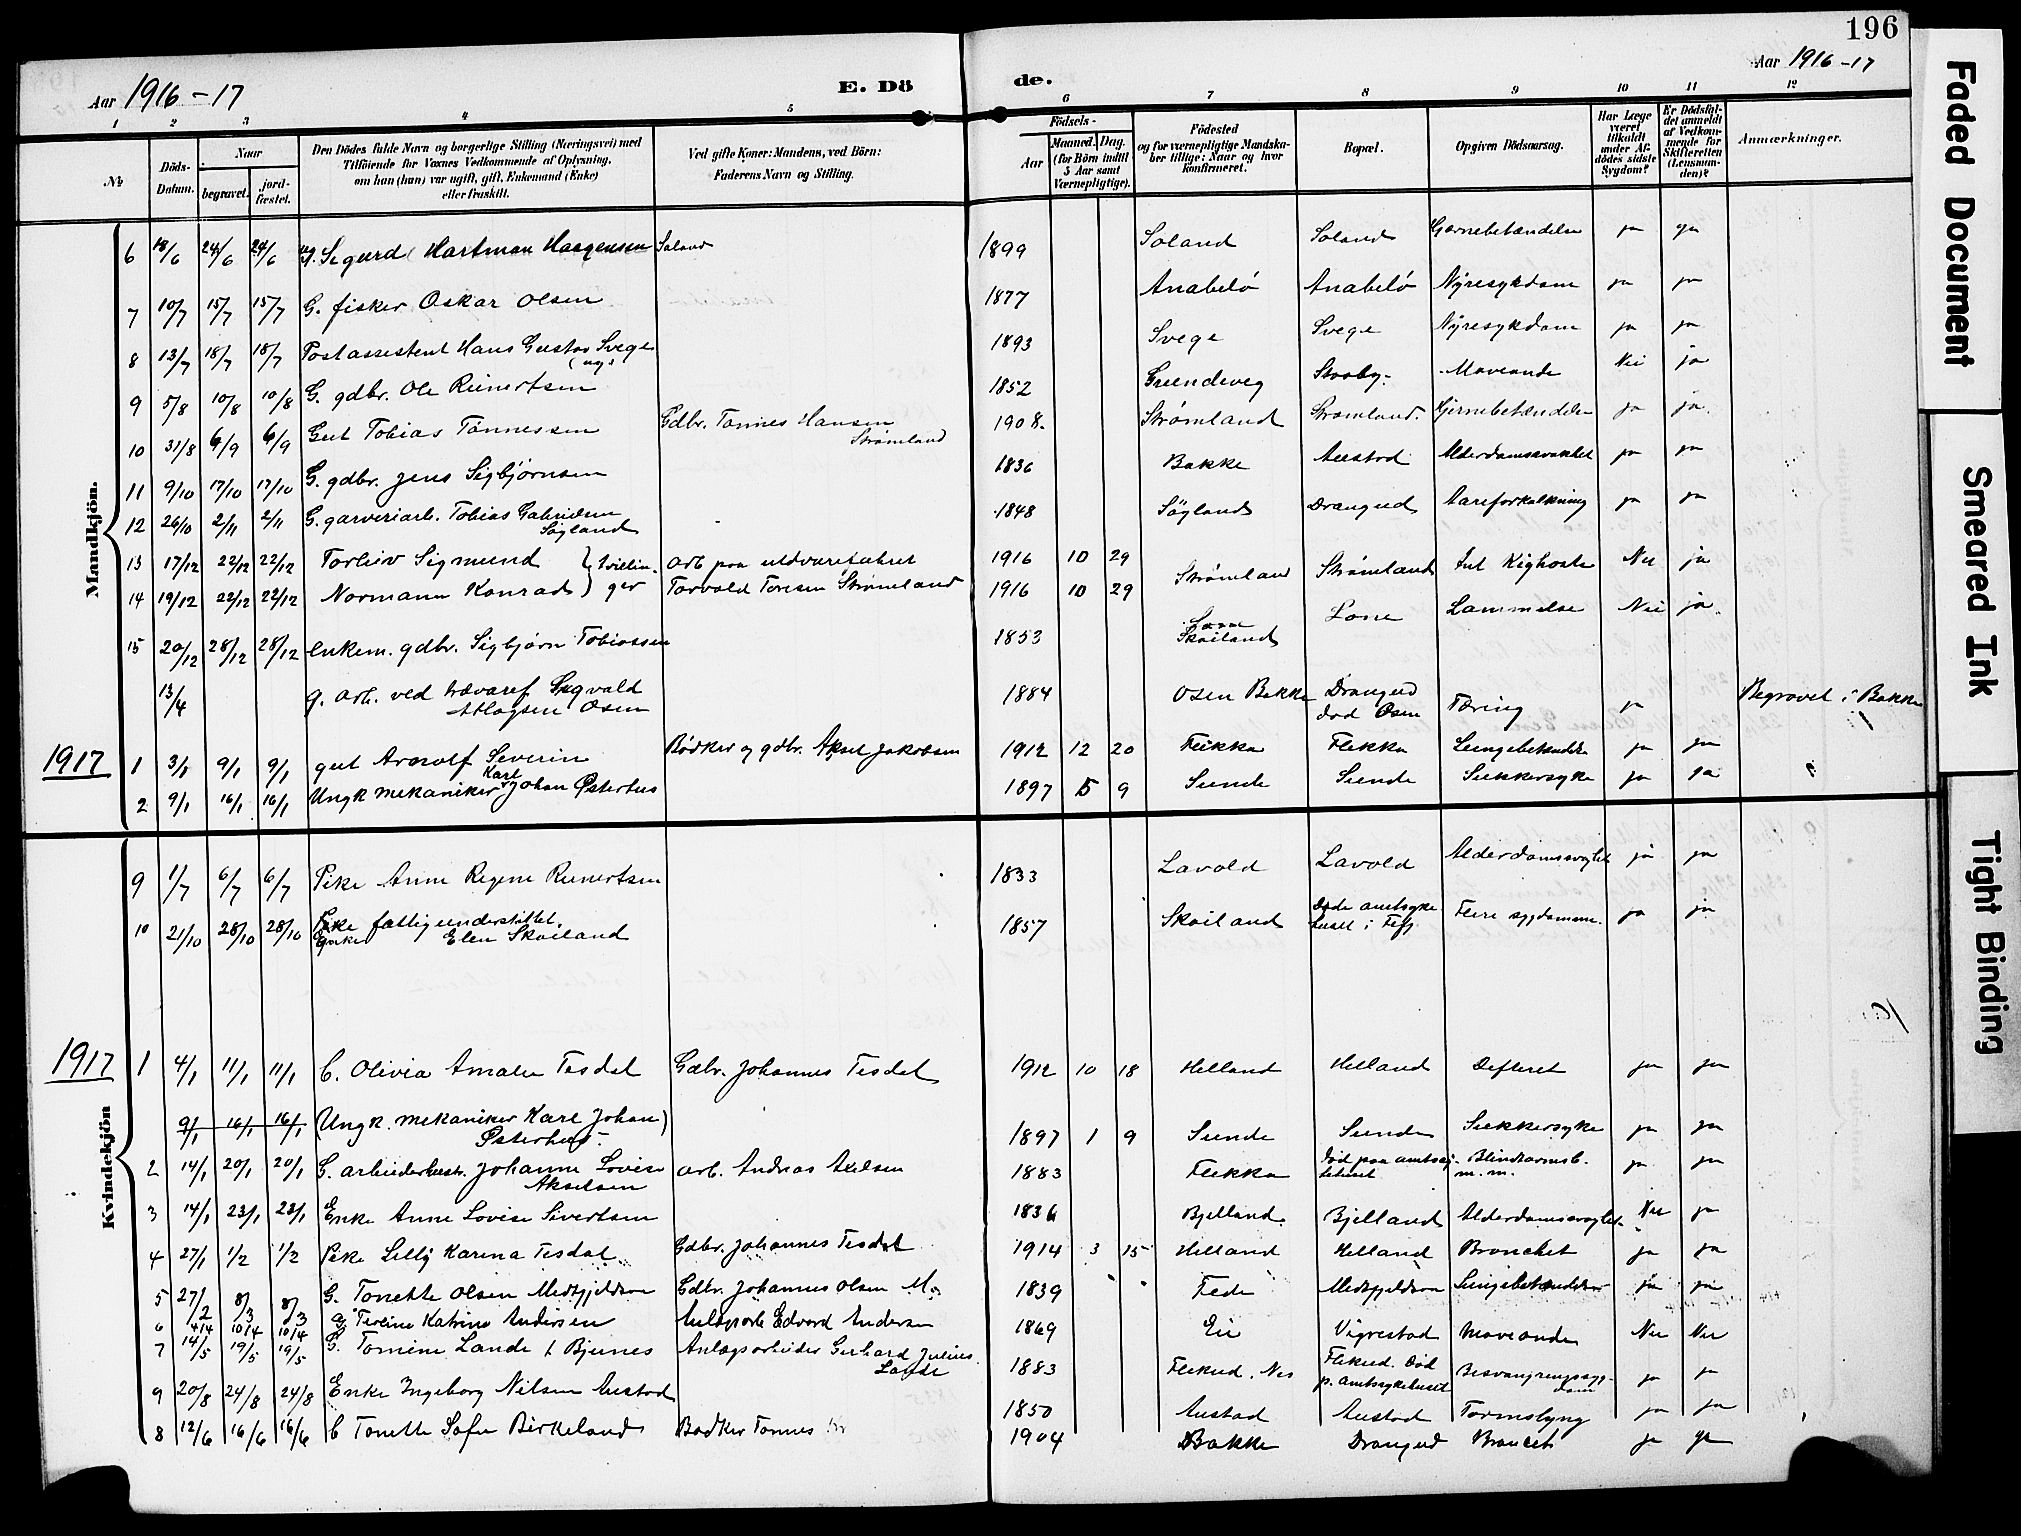 196
Aar 1916-17
E. Dö
de.
Aar 1916-17
1 2 3 4 5 6 7 8 9 10 11 12
№
Döds-Datum.
Naar
begravet.
jord-fæstet.
Den Dödes fulde Navn og borgerlige Stilling (Næringsvei) med
Tilföiende for Voxnes Vedkommende af Oplysning,
om han (hun) var ugift, gift, Enkemand (Enke)
eller fraskilt.
Ved gifte Koner: Mandens, ved Börn:
Faderens Navn og Stilling.
Födsels-
Aar
Maaned. Dag.
(for Börn indtil
5 Aar samt
Værnepligtige).
Födested
og for værnepligtige Mandska-
ber tillige: Naar og hvor
konfirmeret.
Bopæl.
Opgiven Dödsaarsag.
Har Læge
været
tilkaldt
under Af-
dödes sidste
Sygdom?
Er Dödsfal-
det anmeldt
af Vedkom-
mende for
Skifteretten
(Lensman-
den)?
Anmærkninger.
Mandkjön.
6 18/6 24/6 24/6 ug. Sigurd Hartman Haagensen Saland 1899 Saland Saland Hjernebetændelse ja ja
7 10/7 15/7 15/7 G. fisker Oskar Olsen 1877 Anabelø Anabelø Nyresykdom ja ja
8 13/7 18/7 18/7 Postassistent Hans Gustav Svege (ug) 1893 Svege Svege Nyresykdom ja ja
9 5/8 10/8 10/8 G. gdbr. Ole Reinertsen 1852 Grundeveg Maveonde Nei ja
10 31/8 6/9 6/9 Gut Tobias Tønnessen Gdbr. Tønnes Hansen
Strømland 1908. Strømland Strømland. Hjernebetændelse ja ja.
11 9/10 17/10 17/10 G. gdbr. Jens Sigbjørnsen 1836 Bakke Austad Alderdomssvakhet ja ja
12 26/10 2/11 2/11 G. garveriarb. Tobias Gabrielsen
Søyland 1848 Søyland Drangeid Aareforkalkning ja ja
13 17/12 22/12 22/12 Torleiv Sigmund } Tvillin- Arb. paa uldvarefabrik 1916 10 29 Strømland Strømland Int. Kighoste Nei ja
14 19/12 22/12 22/12 Normann Konrad } ger Torvald Toresen Strømland 1916 10 29
15 20/12 28/12 28/12 enkem. gdbr. Sigbjørn Tobiassen 1853 Skoiland Lone Lammelse Nei ja.
13/4 g. arb. ved trævaref. Sigvald
Atlagsen Osen 1884 Osen Bakke Drangeid
død Osen Tæring ja Begravet i Bakke
1917
1 3/1 9/1 9/1 gut Arnolf Severin Bødker og gdbr. Aksel Jakobsen 1912 12 20 Flikka Flikka Lungebetændelse ja ja
2 9/1 16/1 16/1 Ungk. mekaniker Karl Johan Østerhus 1897 5 9 Sunde Sunde Sukkersyke ja ja
Kvindekjön
9 1/7 6/7 6/7 Pike Anne Regine Reinertsen 1833 Lavold Lavold Alderdomssvaghet ja ja
10 21/10 28/10 28/10 Pike fattigunderstøttet.
Enke Elen Skoiland 1857 Skoiland Døde amtsyke
huset i Flfj. Flere sygdomme. ja ja
1917
1 4/1 11/1 11/1 B. Olivia Amalie Tesdal Gdbr. Johannes Tesdal 1912 10 18 Helland Helland Difterit ja ja
9/1 16/1 16/1 (Ungk. mekaniker Karl Johan)
Østerhus. 1897 1 9 Sunde Sunde Sukkersyke ja ja
2 14/1 20/1 20/1 G. arbeiderhustr. Johanne Lovise
Akselsen arb. Andreas Axelsen 1883 Flikka Død paa amtssy-
kehuset Blindtarmsb.
m.m. ja ja
3 14/1 23/1 23/1 Enke Anne Lovise Sivertsen 1836 Bjelland. Bjelland Alderdomssvaghet Nei ja
4 27/1 1/2 1/2 Pike Lilly Karina Tesdal Gdbr. Johannes Tesdal 1914 3 15 Helland Helland Bronchit ja ja
5 27/2 8/3 8/3 G. Tonette Olsen Medgjeldron Gdbr. Johannes Olsen M. 1839 Fede Medgjeldron Lungebetændelse ja ja
6 4/4 10/4 10/4 g. Tesine Katrine Andersen Anlægsarb. Edvard Andersen 1869 Eie Vigrestad Maveonde Nei Nei
7 14/5 19/5 19/5 G. Tomine Lande f. Bjunes Anlægsarbeider Gerhard Julius
Lande 1883 Flikeid. Nes Flikeid. Død
p. amtssykehuset Besvangringssyg-
dom ja ja
9 20/8 24/8 24/8 Enke Ingeborg Nilsen Austad 1850 Austad Austad Tarmslyng ja ja
8 12/6 16/6 16/6 B Tonette Sofie Birkeland Bødker Tønnes 1904 Bakke Drangeid Broncit ja ja
Faded Document
Smeared Ink
Tight Binding